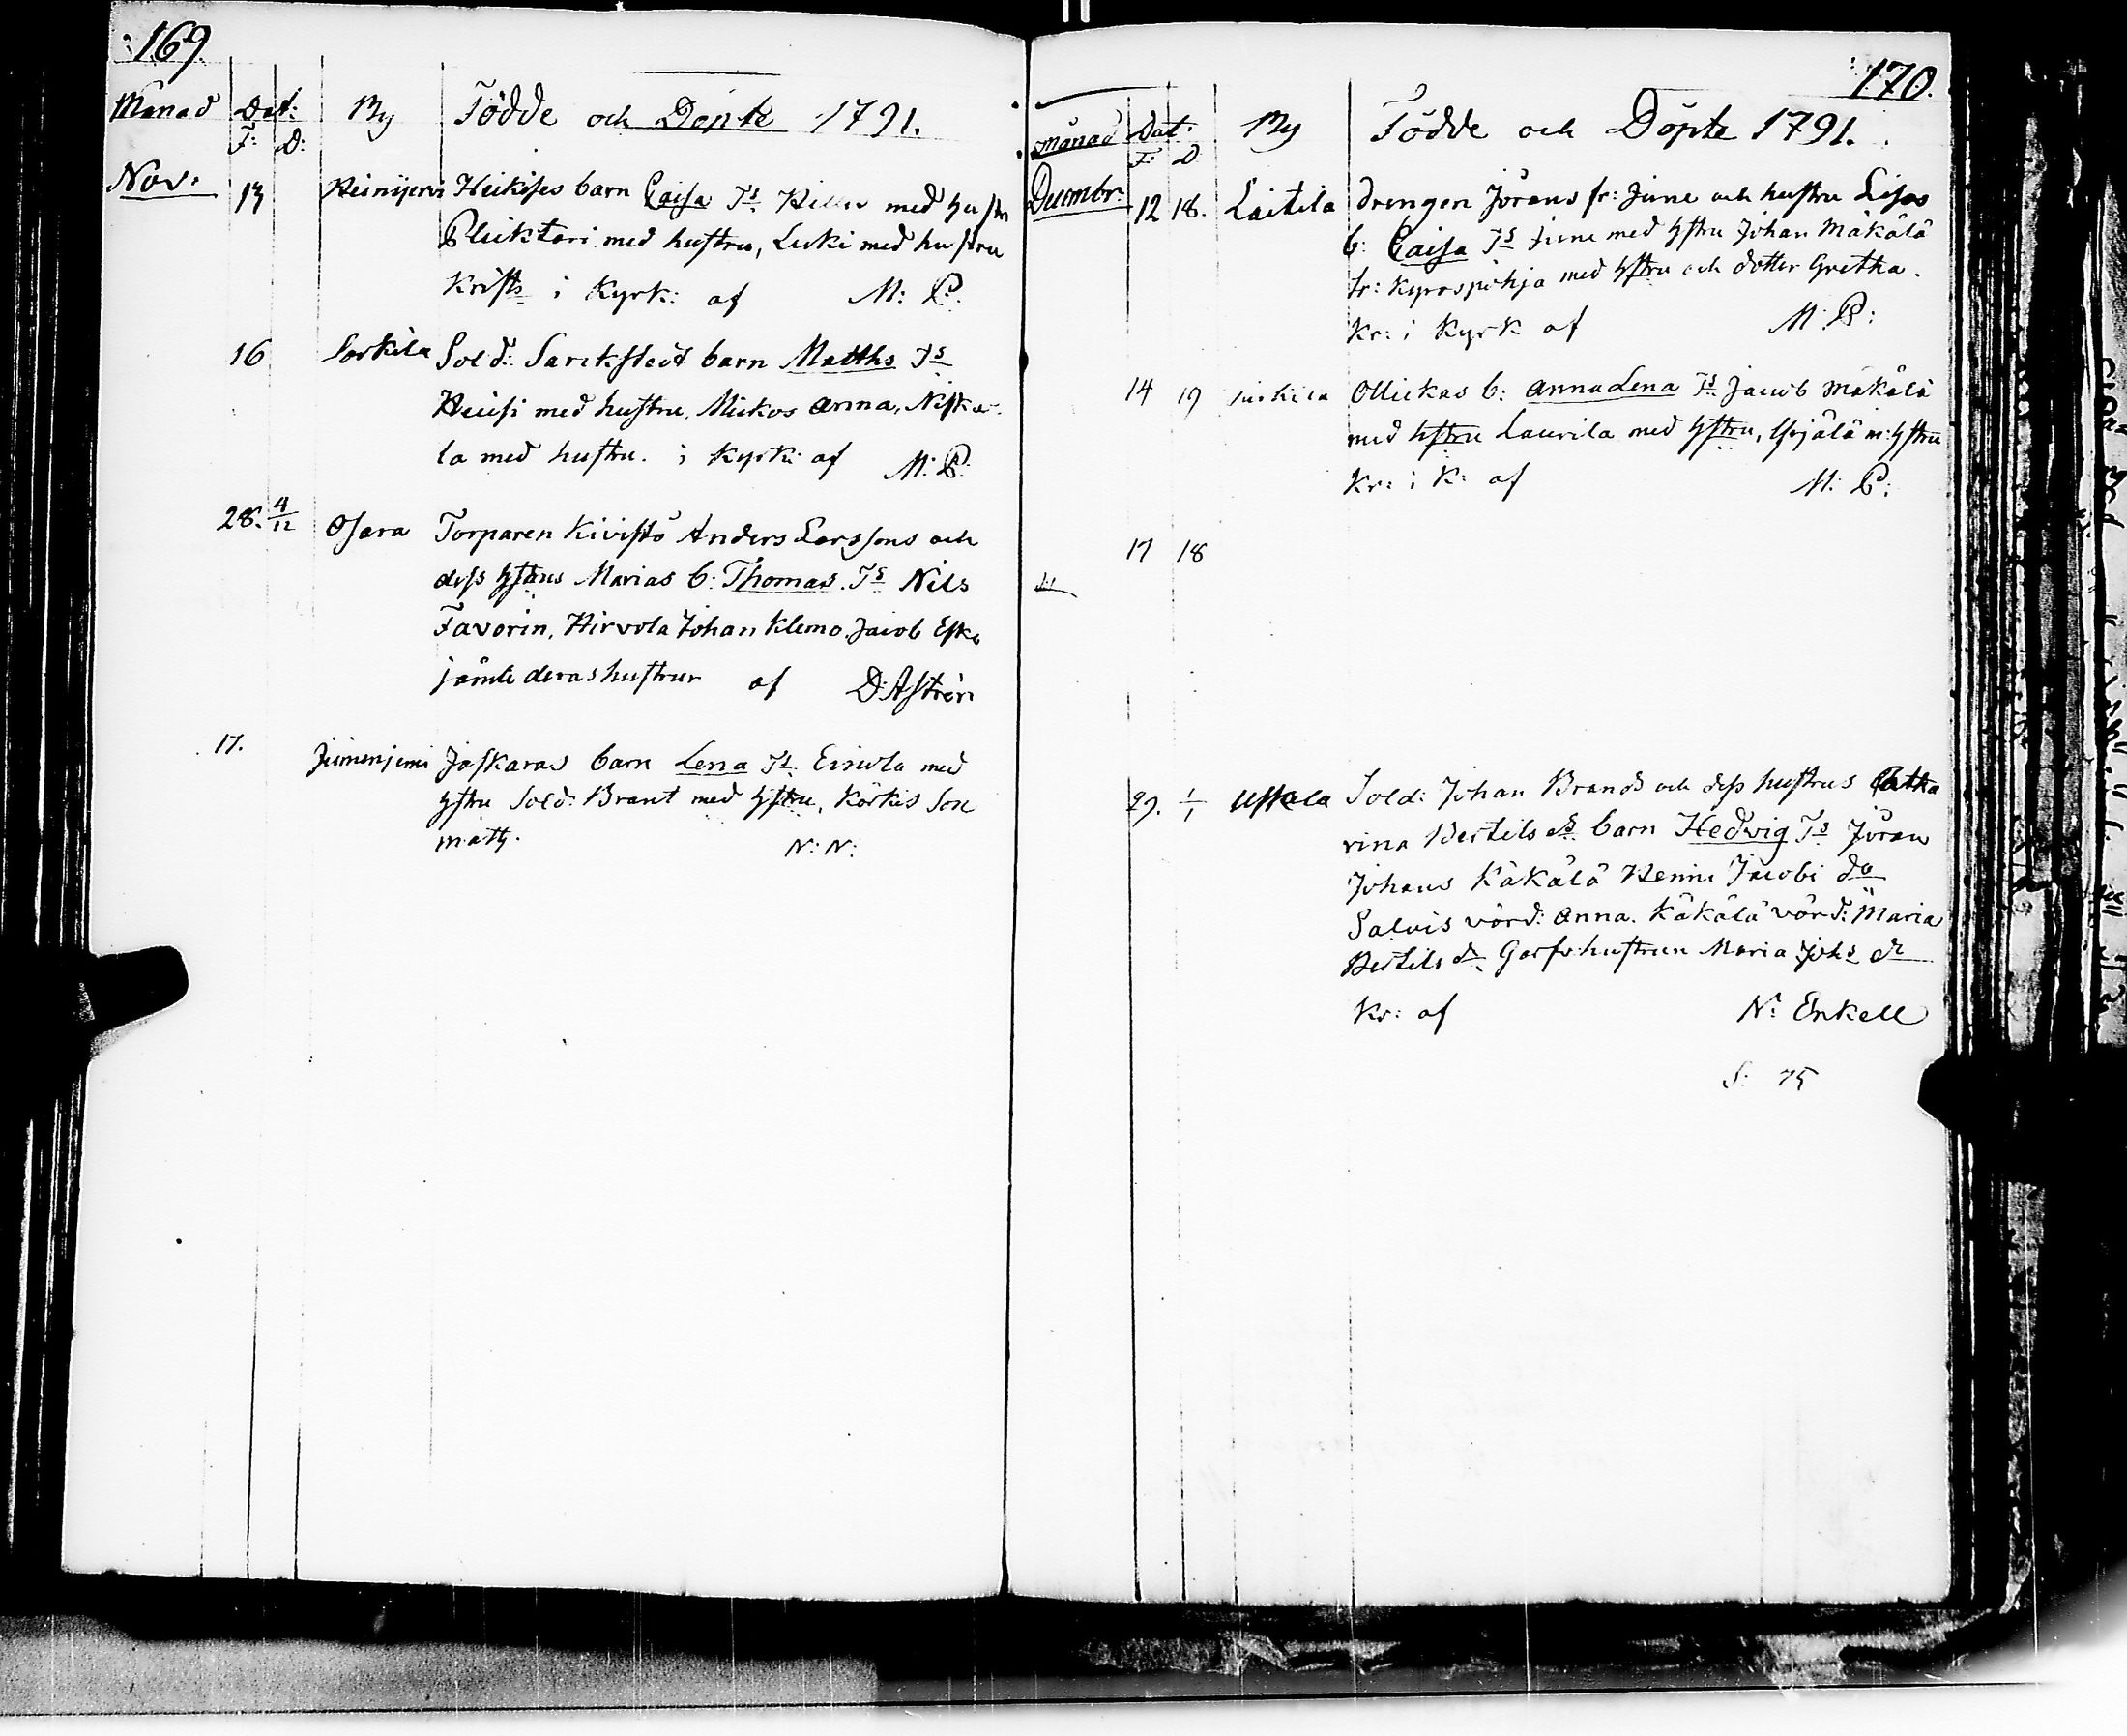 169.
Månad Dat: By Födde och Döpte 1791.
F: D:
Nov: 13 Heinijervi Heikises barn Caisa Ts med hustru
med hustru, Luki med hustru
Krists i Kyrk: af M: P.
16 Sorkila Sold: Sarckstedt barn Matths Ts
Heisi med hustru, Mickos Anna, Niska-
la med hustru. i Kyrk: af M: P:
28. 4/12 Osara Torparen Kivistö Anders Larssons och
dess hstrus Marias b: Thomas. Ts Nils
Favorin, Hirvola Johan Klemo. Jacob Esko
jämte deras hustrur af D: Aström
17. Jumenjemi Jaskaras barn Lena Ts med
hstru Sold: Brant med hstru, Körkis Son
Matts. N: N:
170.
Månad Dat: By Födde och Döpte 1791.
F: D
Decembr: 12 18. Laitila drengen Jörans fr: June och hustru Lisas
b: Caisa Ts June med hstru Johan Mäkälä
fr: Kyrospohja med hstru och dotter Gretha.
Kr: i Kyrk af M: P:
14 19 Ollickas b: Anna Lena Ts Jacob Mäkälä
med hstru Laurila med hstru, m: hstru
Kr: i K: af M: P:
17 18
29. 1/1 Uskela Sold: Johan Brands och dess hustrus Catha
rina Bertils dr barn Hedvig Ts Jöran
Johans Käkälä Henric Jacobi do
Salvis värd: Anna. Käkälä värd: Maria
Bertils dr Garfvhustrun Maria Johs dr
Kr: af N: Enkell
S: 75